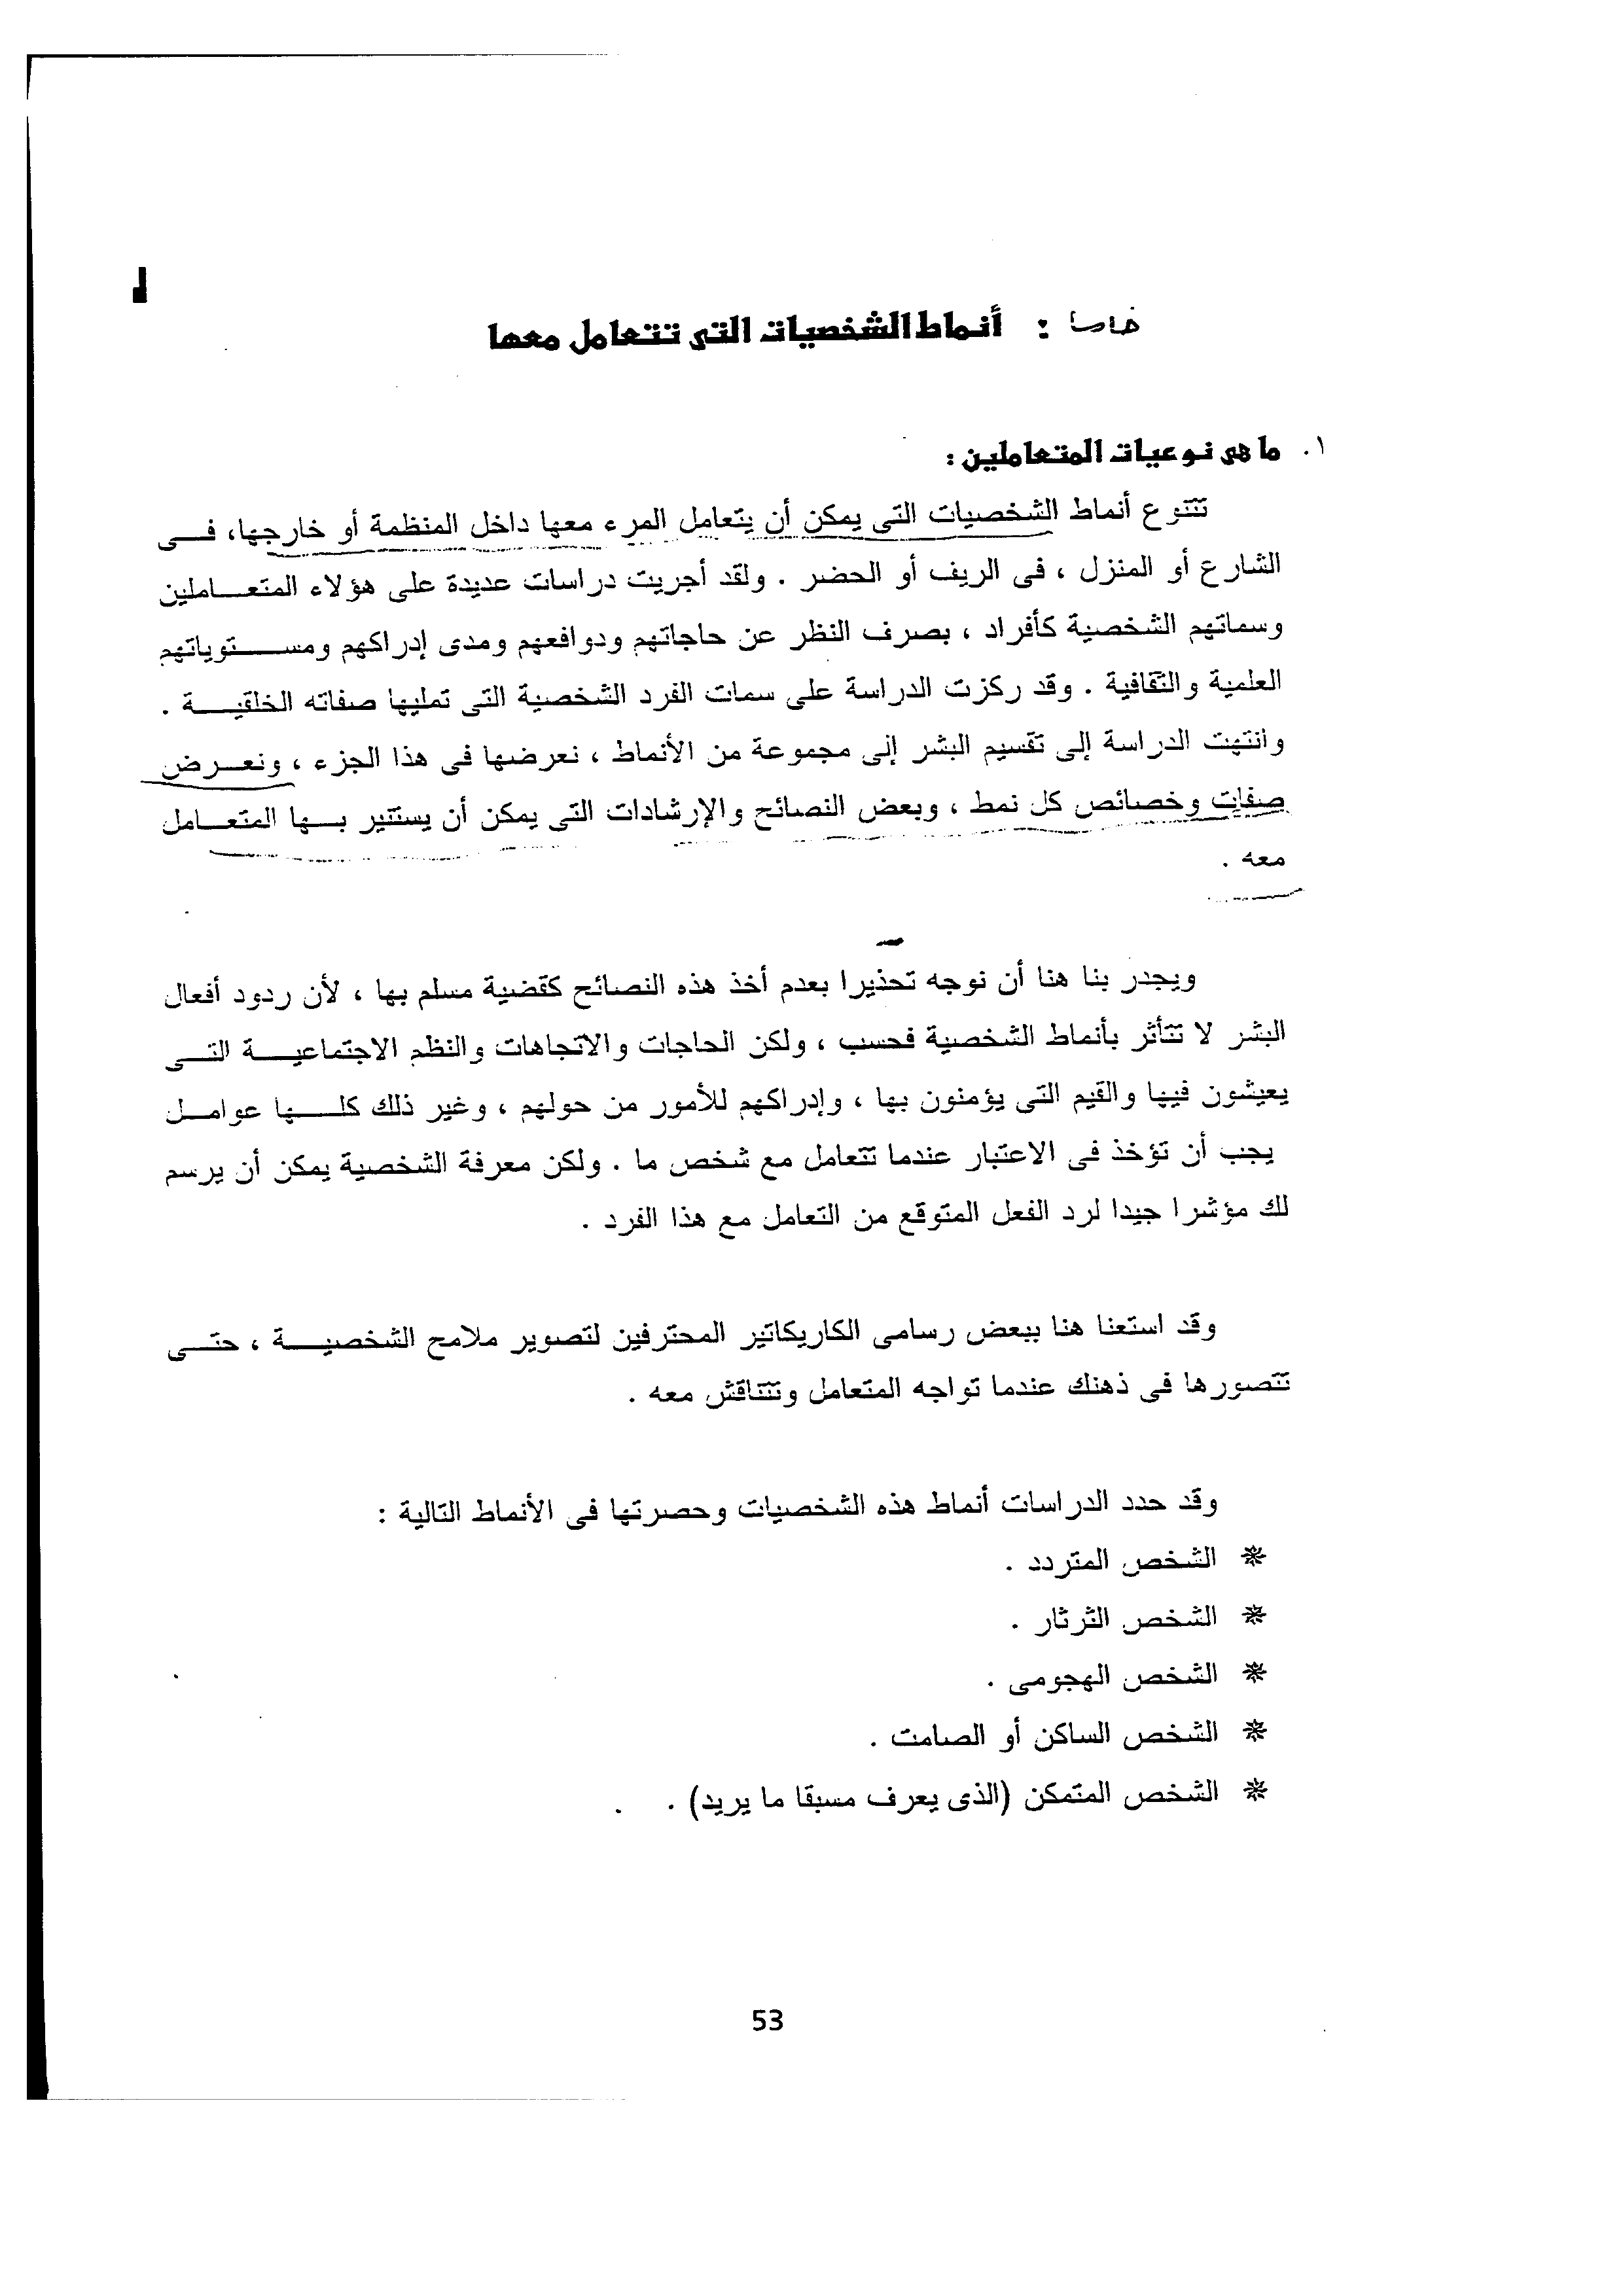 خامسا : أنماط الشخصيات التى تتعامل معها
١. ما هى نوعيات المتعاملين :
تتنوع أنماط الشخصيات التى يمكن أن يتعامل المرء معها داخل المنظمة أو خارجها، فــى
الشارع أو المنزل ، فى الريف أو الحضر . ولقد أجريت دراسات عديدة على هؤلاء المتعــاملين
وسماتهم الشخصية كأفراد ، بصرف النظر عن حاجاتهم ودوافعهم ومدى إدراكهم ومســتوياتهم
العلمية والثقافية . وقد ركزت الدراسة على سمات الفرد الشخصية التى تمليها صفاته الخلقيــة .
وانتهت الدراسة إلى تقسيم البشر إلى مجموعة من الأنماط ، نعرضها فى هذا الجزء ، ونعــرض
صفات وخصائص كل نمط ، وبعض النصائح والإرشادات التى يمكن أن يستنير بــها المتعــامل
معه .
ويجدر بنا هنا أن نوجه تحذيرا بعدم أخذ هذه النصائح كقضية مسلم بها ، لأن ردود أفعال
البشر لا تتأثر بأنماط الشخصية فحسب ، ولكن الحاجات والاتجاهات والنظم الاجتماعيــة التــى
يعيشون فيها والقيم التى يؤمنون بها ، وإدراكهم للأمور من حولهم ، وغير ذلك كلــها عوامــل
يجب أن تؤخذ فى الاعتبار عندما تتعامل مع شخص ما . ولكن معرفة الشخصية يمكن أن يرسم
لك مؤشرا جيدا لرد الفعل المتوقع من التعامل مع هذا الفرد .
وقد استعنا هنا ببعض رسامى الكاريكاتير المحترفين لتصوير ملامح الشخصيــة ، حتــى
تتصورها فى ذهنك عندما تواجه المتعامل وتتناقش معه .
وقد حدد الدراسات أنماط هذه الشخصيات وحصرتها فى الأنماط التالية :
* الشخص المتردد .
* الشخص الثرثار .
* الشخص الهجومى .
* الشخص الساكن أو الصامت .
* الشخص المتمكن (الذى يعرف مسبقا ما يريد) .
53